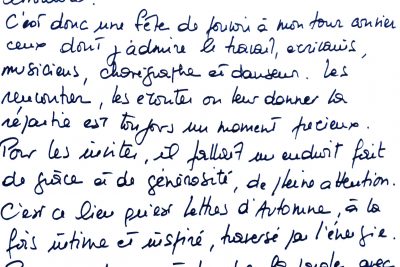 C'est donc une fête de pouvoir à mon tour convier
ceux dont j'admire le travail, écrivains,
musiciens, chorégraphe et danseur. Les
rencontrer, les écouter ou leur donner la
répartie est toujours un moment précieux.
Pour les inviter, il fallait un endroit fait
de grâce et de générosité, de pleine attention.
C'est ce lieu qu'est Lettres d'Automne, à la
fois intime et inspiré, traversé par l'énergie.